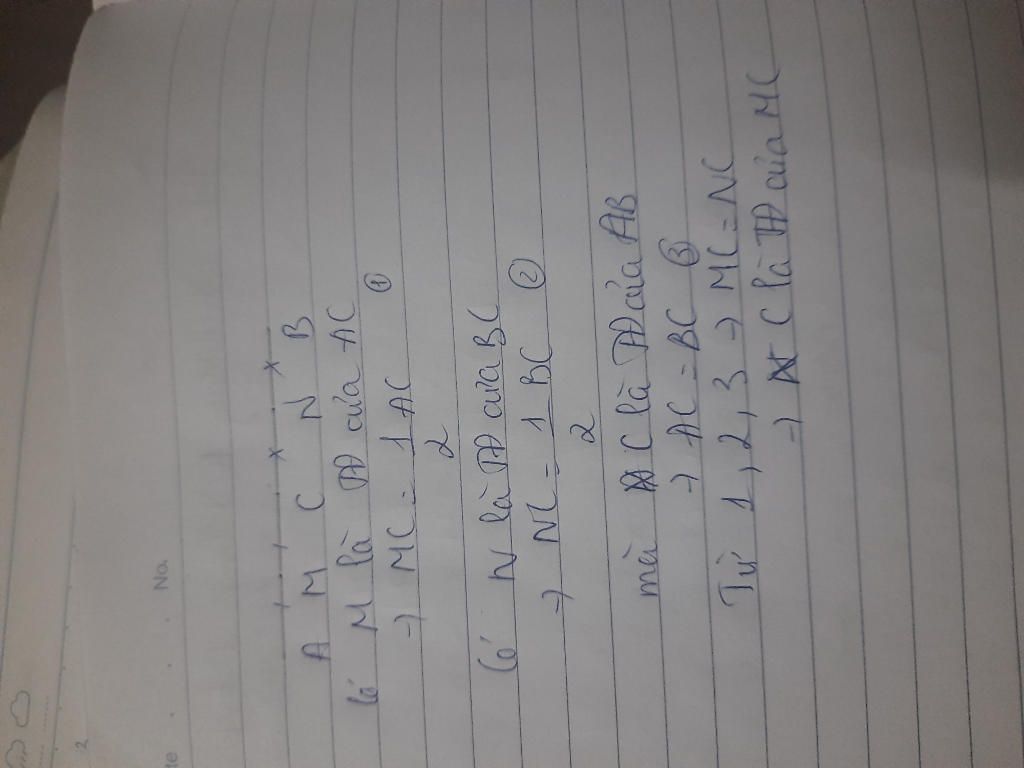 No.
A M C N B
Có M là TĐ của AC
→ MC = 1 AC ①
2
Có N là TĐ của BC
→ NC = 1 BC ②
2
mà C là TĐ của AB
→ AC = BC ③
Từ 1, 2, 3 → MC = NC
→ C là TĐ của MC